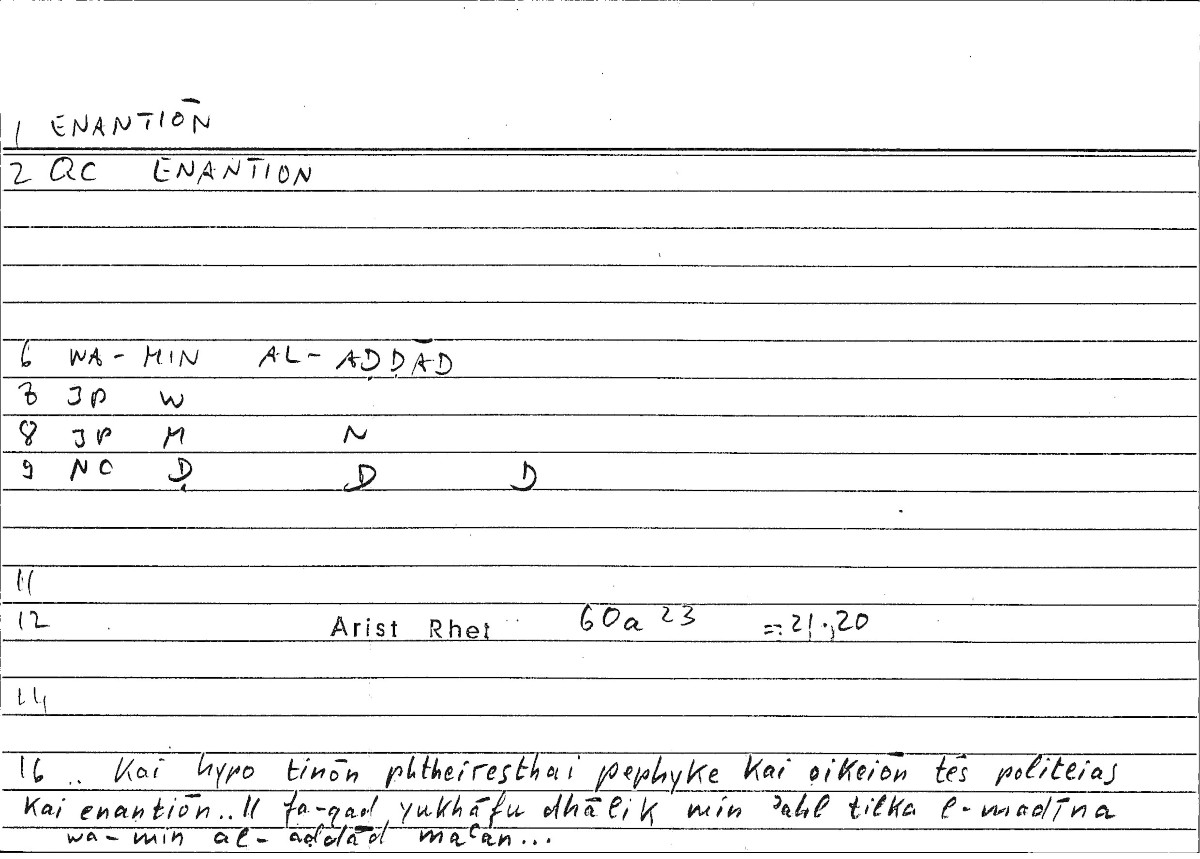 1 ENANTIŌN
2 QC ENANTION
6 WA-MIN AL-AḌḌĀD
7 JP W
8 JP M N
9 NC Ḍ D D
11
12 Arist Rhet 60a23 = 21,20
14
16 .. Kai hypo tinōn phtheiresthai pephyke kai oikeiōn tēs politeias
kai enantiōn..|| fa-qad yukhāfu dhālik min ʾahl tilka l-madīna
wa-min al-aḍdād maʿan...